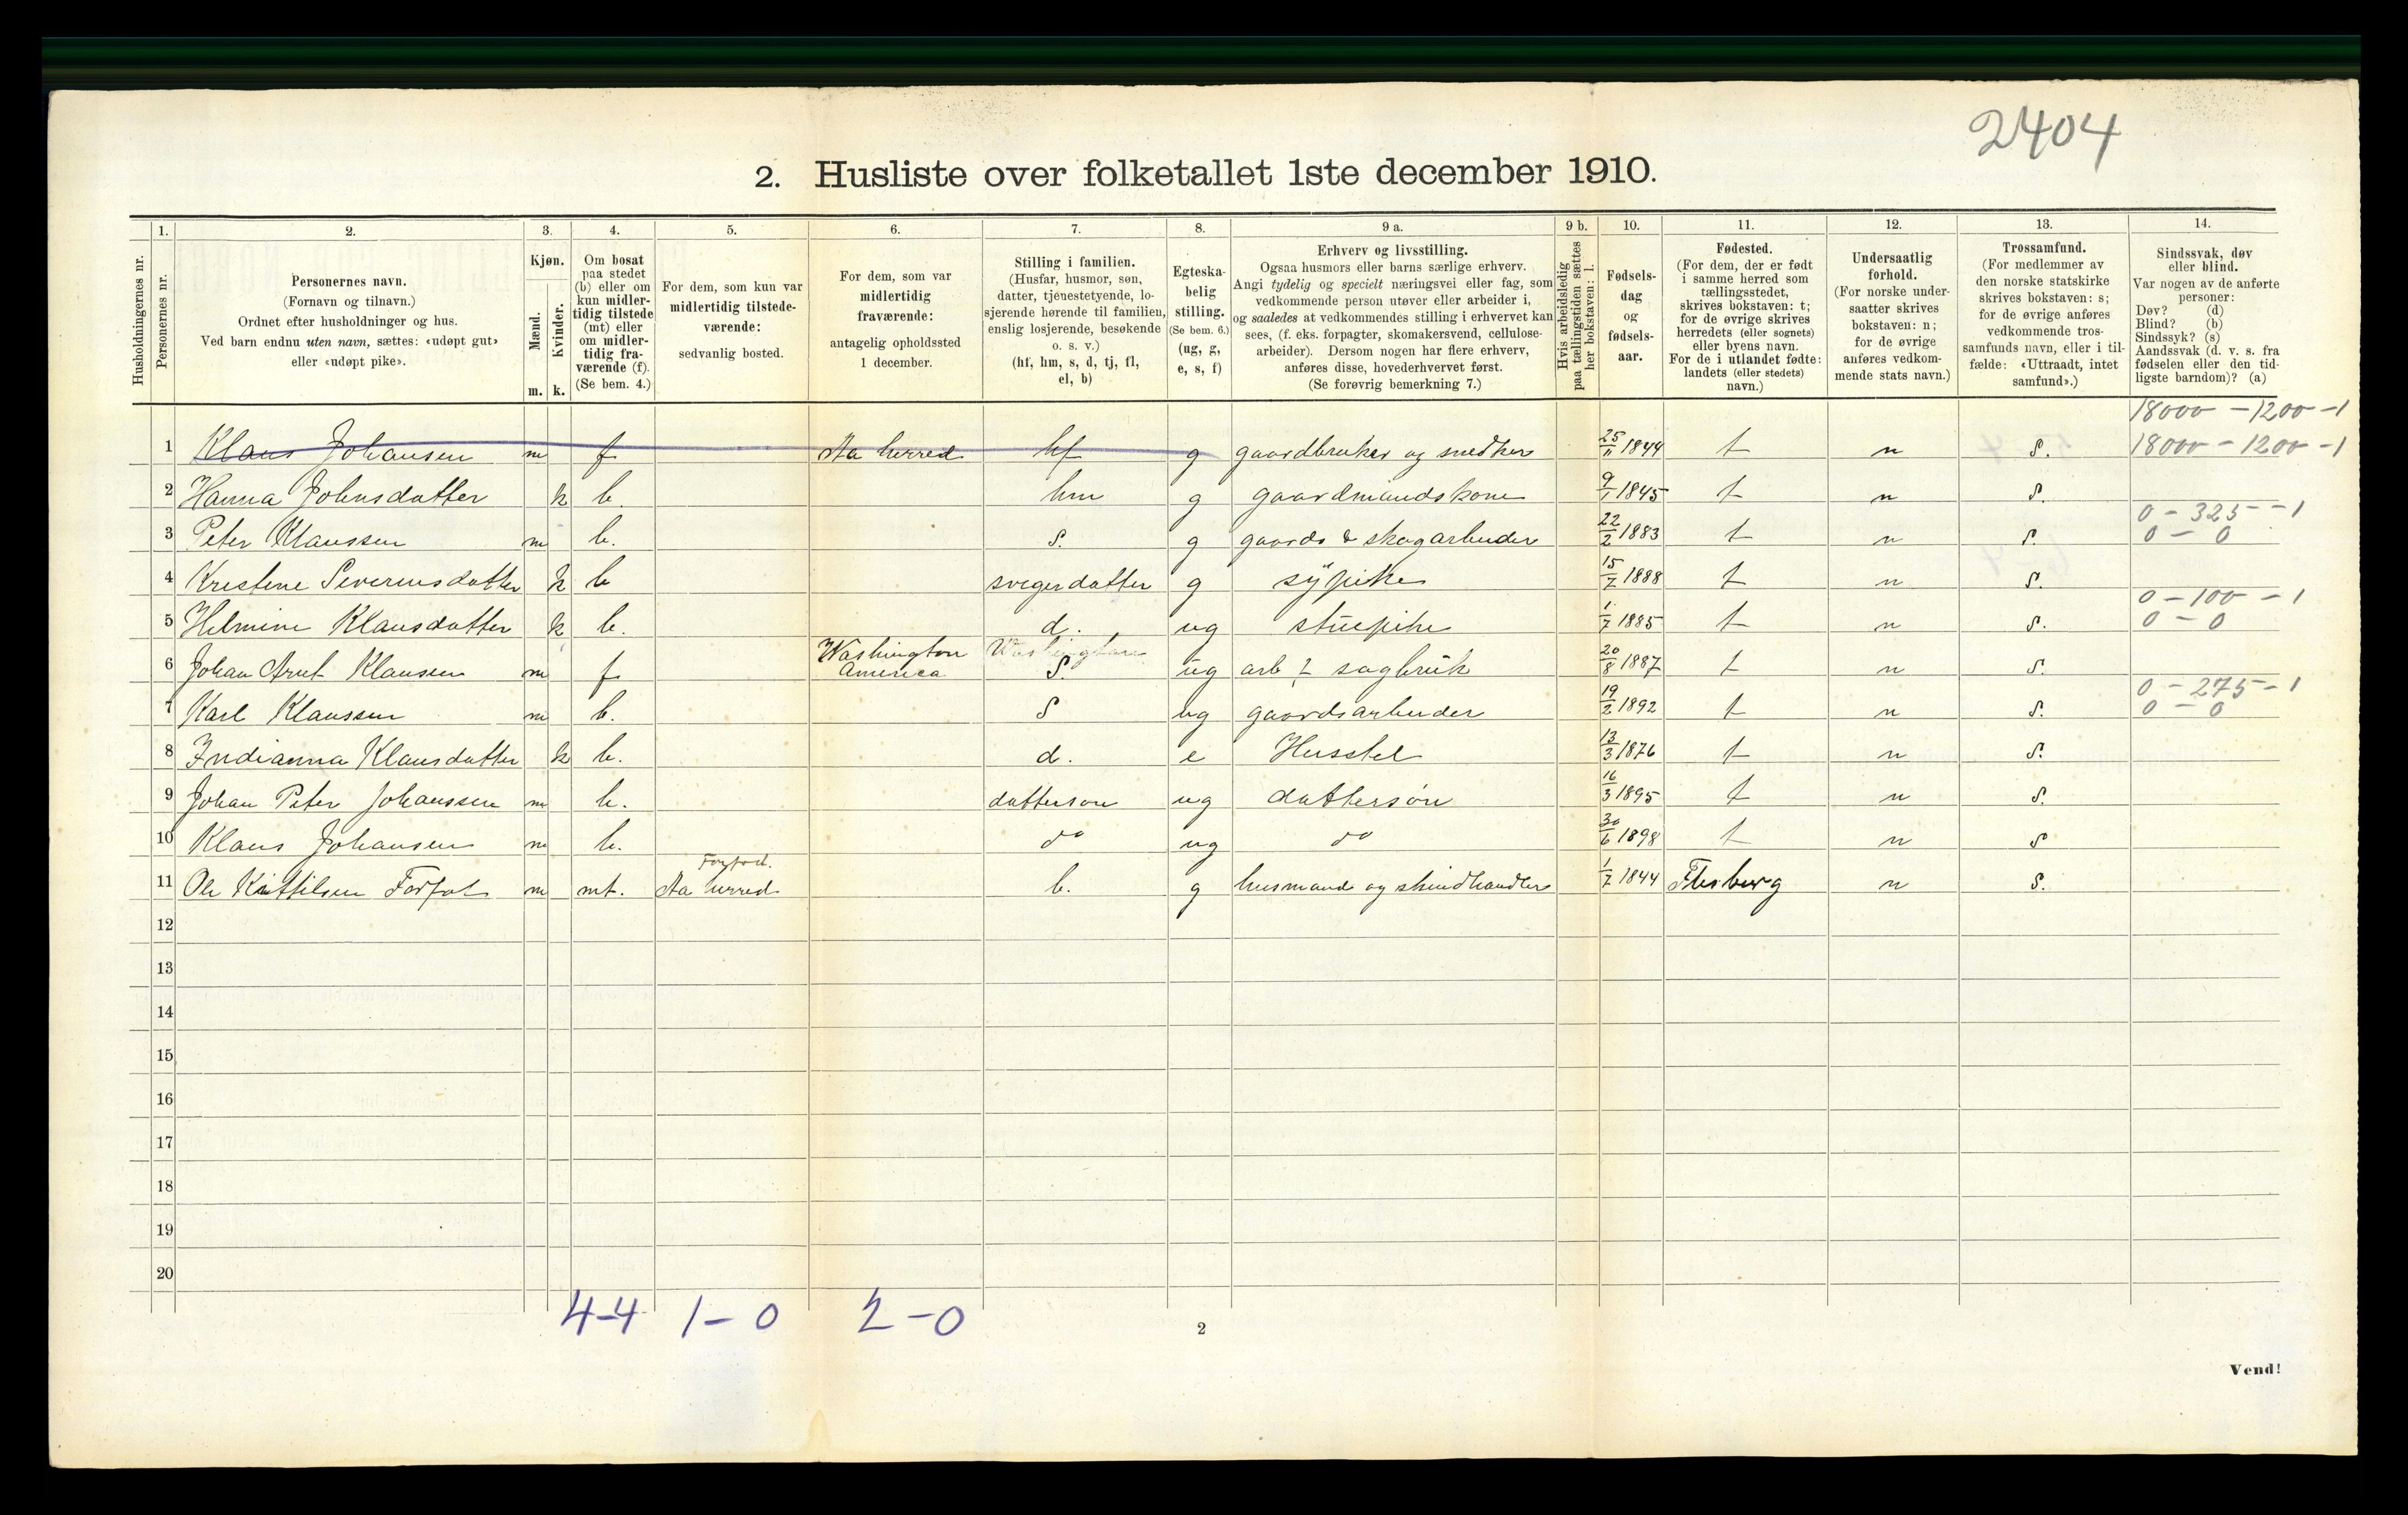 2404
2. Husliste over folketallet 1ste december 1910.
Husholdningernes nr.
1.
Personernes nr.
2.
Personernes navn.
(Fornavn og tilnavn.)
Ordnet efter husholdninger og hus.
Ved barn endnu uten navn, sættes: «udøpt gut»
eller «udøpt pike».
3.
Kjøn.
Mænd.
Kvinder.
m. k.
4.
Om bosat
paa stedet
(b) eller om
kun midler-
tidig tilstede
(mt) eller
om midler-
tidig fra-
værende (f).
(Se bem. 4.)
5.
For dem, som kun var
midlertidig tilstede-
værende:
sedvanlig bosted.
6.
For dem, som var
midlertidig
fraværende:
antagelig opholdssted
1 december.
7.
Stilling i familien.
(Husfar, husmor, søn,
datter, tjenestetyende, lo-
sjerende hørende til familien,
enslig losjerende, besøkende
o. s. v.)
(hf, hm, s, d, tj, fl,
el, b)
8.
Egteska-
belig
stilling.
(Se bem. 6.)
(ug, g,
e, s, f)
9 a.
Erhverv og livsstilling.
Ogsaa husmors eller barns særlige erhverv.
Angi tydelig og specielt næringsvei eller fag, som
vedkommende person utøver eller arbeider i,
og saaledes at vedkommendes stilling i erhvervet kan
sees, (f. eks. forpagter, skomakersvend, cellulose-
arbeider). Dersom nogen har flere erhverv,
anføres disse, hovederhvervet først.
(Se forøvrig bemerkning 7.)
9 b.
Hvis arbeidsledig
paa tællingstiden sættes
her bokstaven: l.
10.
Fødsels-
dag
og
fødsels-
aar.
11.
Fødested.
(For dem, der er født
i samme herred som
tællingsstedet,
skrives bokstaven: t;
for de øvrige skrives
herredets (eller sognets)
eller byens navn.
For de i utlandet fødte:
landets (eller stedets)
navn.)
12.
Undersaatlig
forhold.
(For norske under-
saatter skrives
bokstaven: n;
for de øvrige
anføres vedkom-
mende stats navn.)
13.
Trossamfund.
(For medlemmer av
den norske statskirke
skrives bokstaven: s;
for de øvrige anføres
vedkommende tros-
samfunds navn, eller i til-
fælde: «Uttraadt, intet
samfund».)
14.
Sindssvak, døv
eller blind.
Var nogen av de anførte
personer:
Døv? (d)
Blind? (b)
Sindssyk? (s)
Aandssvak (d. v. s. fra
fødselen eller den tid-
ligste barndom)? (a)
18000 - 1200 - 1
1 Klaus Johansen m f Aa herred hf g gaardbruker og snedker 25/11 1844 t n S. 18000 - 1200 - 1
2 Hanna Johnsdatter k b. hm g gaardmandskone 9/1 1845 t n S.
0 - 325 - 1
3 Peter Klaussen m b. S. g gaards & skogarbeider 22/2 1883 t n S. 0 - 0
4 Kristine Severinsdatter k b svigerdatter g sypike 15/7 1888 t n S.
0 - 100 - 1
5 Helmine Klausdatter k b. d. ug stuepike 1/7 1885 t n S. 0 - 0
Washington Washington
6 Johan Arnt Klausen m f America S. ug arb i sagbruk 20/8 1887 t n S.
0 - 275 - 1
7 Karl Klaussen m b. S ug gaardsarbeider 19/2 1892 t n S. 0 - 0
8 Indianna Klausdatter k b. d. e Husstel 13/3 1876 t n S.
9 Johan Peter Johanssen m b. datterson ug dattersøn 16/3 1895 t n S.
10 Klaus Johansen m b. do ug do 30/6 1898 t n S
Forfod.
11 Ole Kittilsen Forfot m mt. Aa herred b. g husmand og skindhandler 1/7 1844 Flesberg n S.
12
13
14
15
16
17
18
19
20
4-4 1-0 2-0
2
Vend!